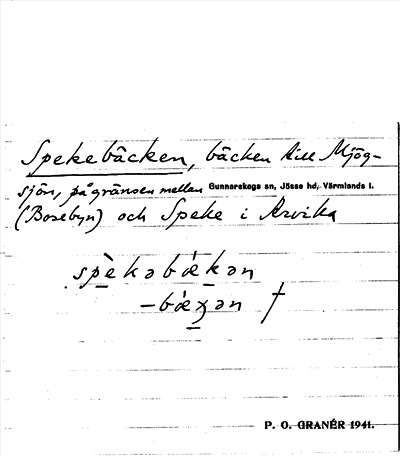 Spekebäcken, bäcken till Mjög-
sjön, på gränsen mellan Gunnarskogs sn, Jösse hd, Värmlands l.
(Bosebyn) och Speke i Arvika
spè̱kəbǽḵən
-bǽx̱ən †
P. O. GRANÉR 1941.